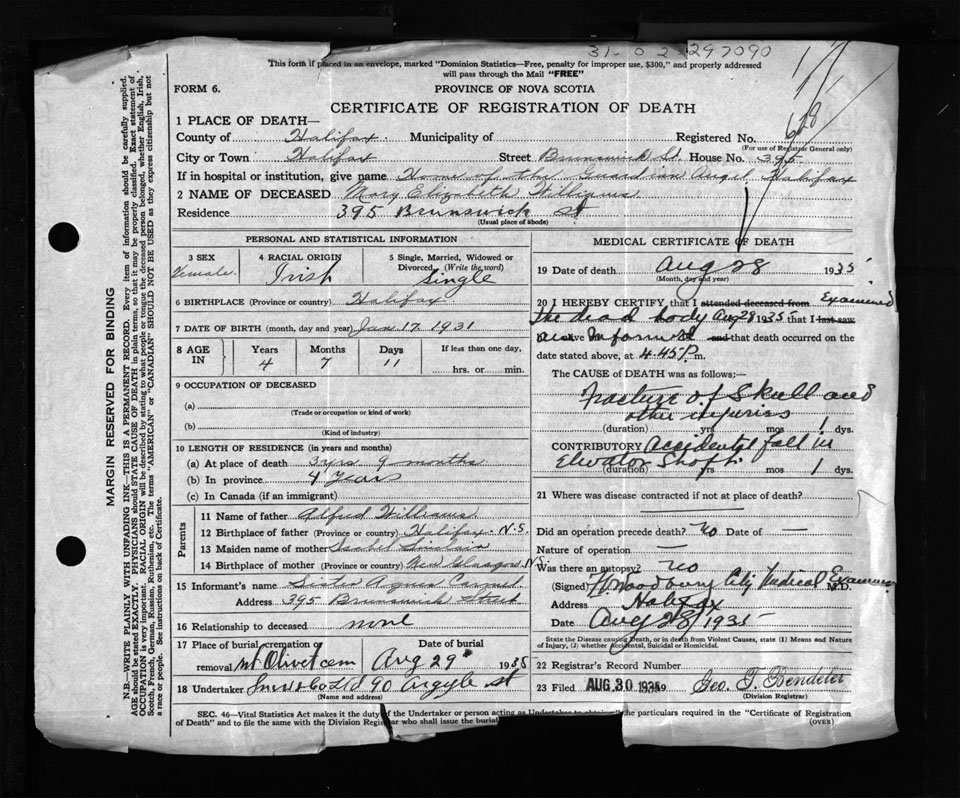 31-02-297090
This form if placed in an envelope, marked "Dominion Statistics—Free, penalty for improper use, $300," and properly addressed
will pass through the Mail "FREE"
FORM 6.
PROVINCE OF NOVA SCOTIA
CERTIFICATE OF REGISTRATION OF DEATH
1 PLACE OF DEATH—
County of Halifax Municipality of Registered No.
628
(For use of Registrar General only)
City or Town Halifax Street Brunswick St. House No. 395
If in hospital or institution, give name Home of the Guardian Angel Halifax
2 NAME OF DECEASED Mary Elizabeth Williams
Residence 395 Brunswick St
(Usual place of abode)
PERSONAL AND STATISTICAL INFORMATION
3 SEX
Female
4 RACIAL ORIGIN
Irish
5 Single, Married, Widowed or
Divorced (Write the word)
Single
6 BIRTHPLACE (Province or country) Halifax
7 DATE OF BIRTH (month, day and year) Jan 17 1931
8 AGE IN
Years Months Days If less than one day,
4 7 11
hrs. or min.
9 OCCUPATION OF DECEASED
(a)
(Trade or occupation or kind of work)
(b)
(Kind of industry)
10 LENGTH OF RESIDENCE (in years and months)
(a) At place of death 3 yrs 9 months
(b) In province 4 Years
(c) In Canada (if an immigrant)
Parents
11 Name of father Alfred Williams
12 Birthplace of father (Province or country) Halifax N.S.
13 Maiden name of mother Isabel Sinclair
14 Birthplace of mother (Province or country) New Glasgow N.S.
15 Informant's name Sister Agnes Carmel
Address 395 Brunswick Street
16 Relationship to deceased none
17 Place of burial, cremation or
removal Mt Olivet cem
Date of burial
Aug 29 1935
18 Undertaker Snow & Co Ltd 90 Argyle St
(Name and address)
MEDICAL CERTIFICATE OF DEATH
19 Date of death Aug 28 1935
(Month, day and year)
20 I HEREBY CERTIFY, that I attended deceased from Examined
the dead body Aug 28 1935 that I last saw
alive Informed and that death occurred on the
date stated above, at 4.45 P. m.
The CAUSE OF DEATH was as follows:—
Fracture of Skull and
other injuries
(duration) yrs mos 1 dys.
CONTRIBUTORY Accidental fall in
Elevator Shaft
(duration) yrs mos 1 dys.
21 Where was disease contracted if not at place of death?
Did an operation precede death? No Date of —
Nature of operation —
Was there an autopsy? No
(Signed) Woodbury City Medical Examiner M.D.
Address Halifax
Date Aug 28 1935
State the Disease causing Death, or in death from Violent Causes, state (1) Means and Nature
of Injury, (2) whether Accidental, Suicidal or Homicidal.
22 Registrar's Record Number
23 Filed AUG 30 1935 Geo. T. Bendeler
(Division Registrar)
SEC. 46—Vital Statistics Act makes it the duty of the Undertaker or person acting as Undertaker to obtain the particulars required in the "Certificate of Registration
of Death" and to file the same with the Division Registrar who shall issue the burial
(OVER)
MARGIN RESERVED FOR BINDING
N.B.—WRITE PLAINLY WITH UNFADING INK—THIS IS A PERMANENT RECORD. Every item of information should be carefully supplied.
AGE should be stated EXACTLY. PHYSICIANS should STATE CAUSE OF DEATH in plain terms, so that it may be properly classified. Exact statement of
OCCUPATION is very important. RACIAL ORIGIN will be described by stating to what people or tongue the deceased person belonged, whether English, Irish,
Scotch, French, German, Russian, Ruthenian, etc. The terms "AMERICAN" or "CANADIAN" SHOULD NOT BE USED as they express citizenship but not
a race or people. See instructions on back of Certificate.